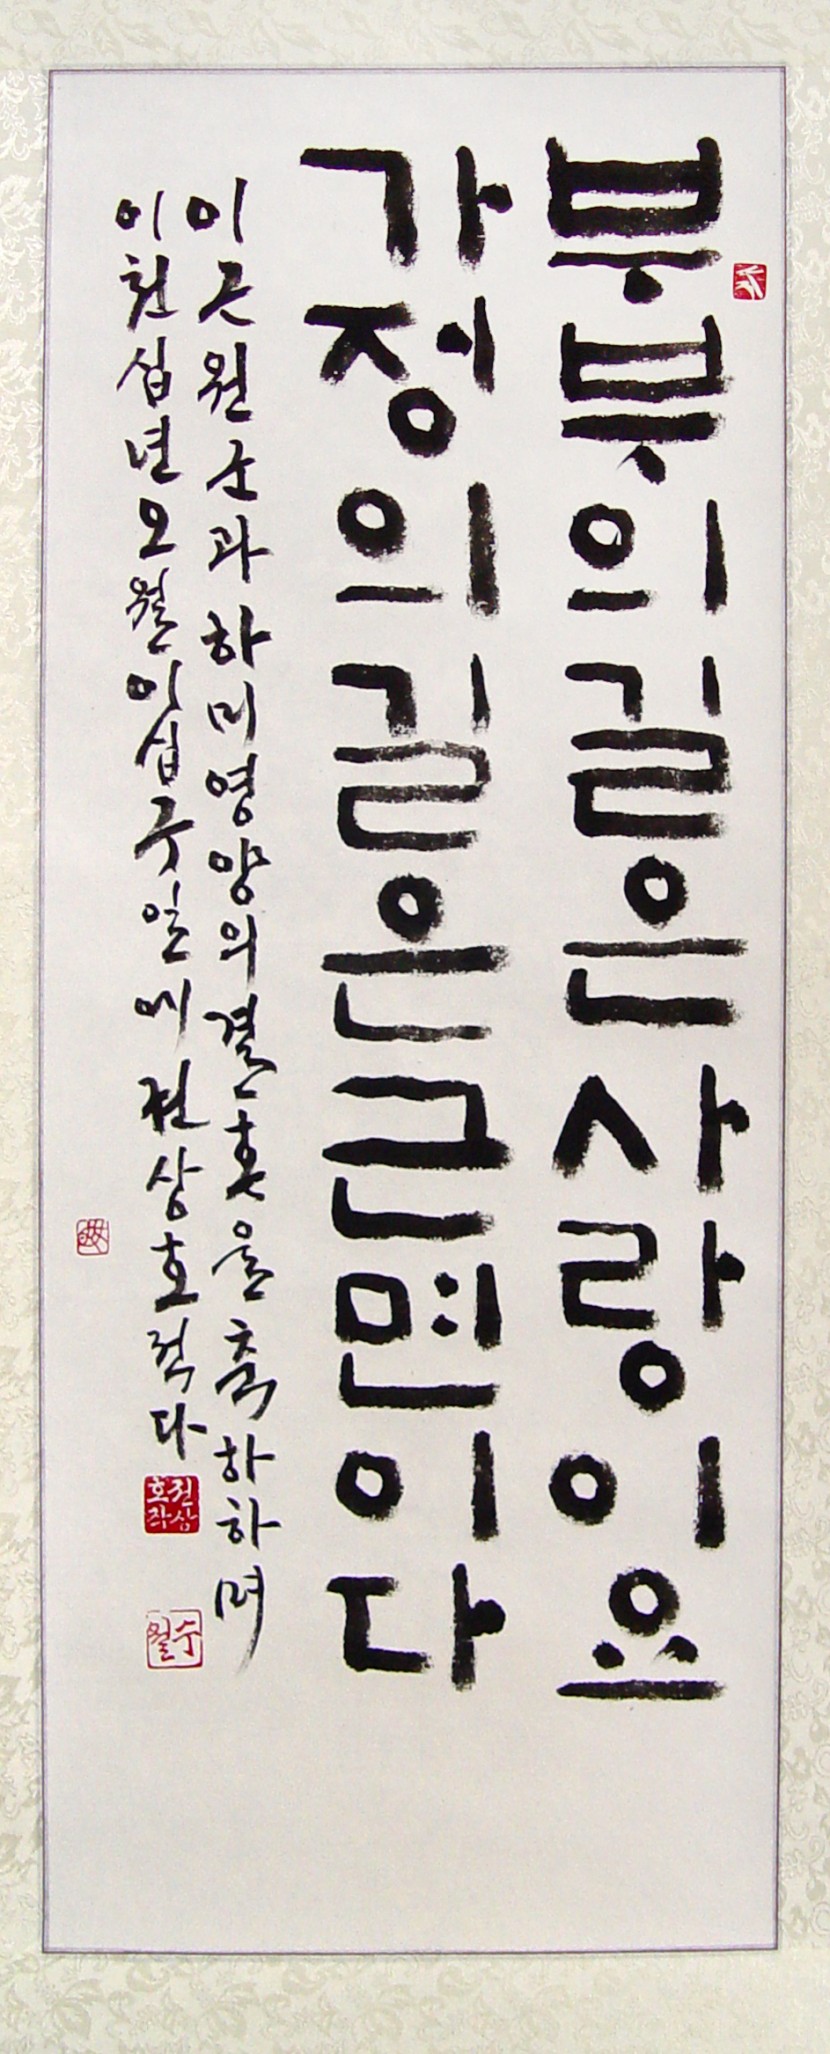 부부의길은사랑이요
가정의길은근면이다
이근원군과하미영양의결혼을축하하며
이천십년오월이십구일에권상호적다
권상호작
수월